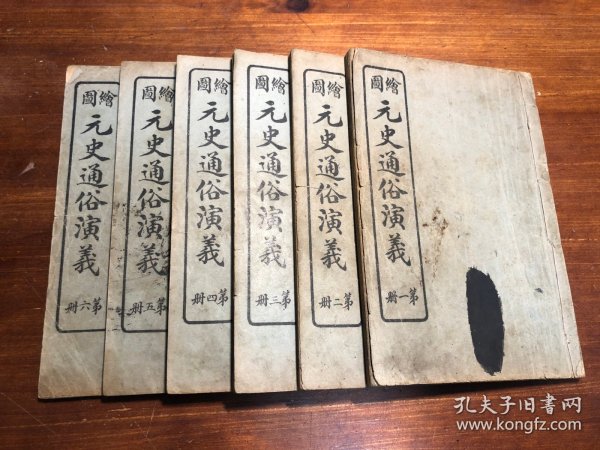 繪圖
元史通俗演義
第一册
繪圖
元史通俗演義
第二册
繪圖
元史通俗演義
第三册
繪圖
元史通俗演義
第四册
繪圖
元史通俗演義
第五册
繪圖
元史通俗演義
第六册
孔夫子旧書网
www.kongfz.com